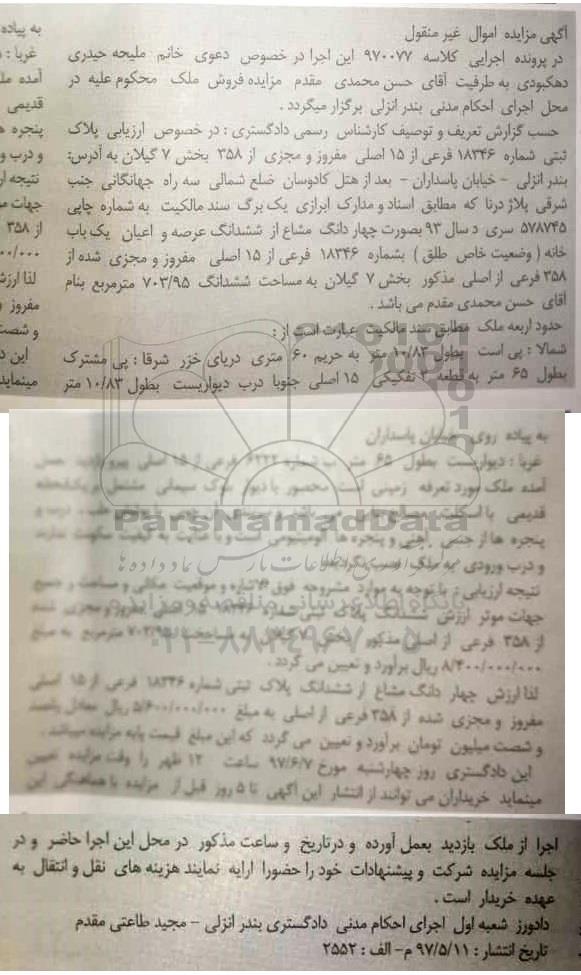 آگهی مزایده اموال غیر منقول
در پرونده اجرایی کلاسه ۹۷۰۰۷۷ این اجرا در خصوص دعوی خانم ملیحه حیدری
دهکبودی به طرفیت آقای حسن محمدی مقدم مزایده فروش ملک محکوم علیه در
محل اجرای احکام مدنی بندر انزلی برگزار میگردد .
حسب گزارش تعریف و توصیف کارشناس رسمی دادگستری : در خصوص ارزیابی پلاک
ثبتی شماره ۱۸۳۴۶ فرعی از ۱۵ اصلی مفروز و مجزی از ۳۵۸ بخش ۷ گیلان به آدرس:
بندر انزلی - خیابان پاسداران - بعد از هتل کادوسان ضلع شمالی سه راه جهانگانی جنب
شرقی پلاژ درنا که مطابق اسناد و مدارک ابرازی یک برگ سند مالکیت به شماره چاپی
۵۷۸۷۴۵ سری د سال ۹۳ بصورت چهار دانگ مشاع از ششدانگ عرصه و اعیان یک باب
خانه ( وضعیت خاص طلق ) بشماره ۱۸۳۴۶ فرعی از ۱۵ اصلی مفروز و مجزی شده از
۳۵۸ فرعی از اصلی مذکور بخش ۷ گیلان به مساحت ششدانگ ۷۰۳/۹۵ مترمربع بنام
آقای حسن محمدی مقدم می باشد .
حدود اربعه ملک مطابق سند مالکیت عبارت است از :
شمالا : پی است بطول ۱۰/۸۳ متر به حریم ۶۰ متری دریای خزر شرقا : پی مشترک
بطول ۶۵ متر به قطعه ۲ تفکیکی ۱۵ اصلی جنوبا درب دیواریست بطول ۱۰/۸۳ متر
به پیاده روی خیابان پاسداران
غربا : دیواریست بطول ۶۵ متر به شماره ۶۲۲۲ فرعی از ۱۵ اصلی
آمده ملک مورد تعرفه زمینی است محصور با دیوار بلوک سیمانی مشتمل بر یکبابخانه
قدیمی با اسکلت
پنجره ها از جنس آهنی و پنجره ها آلومینیومی است و با عنایت به کیفیت سکونت ندارند
و درب ورودی به ملک
نتیجه ارزیابی : با توجه به موارد مشروحه فوق الاشاره و موقعیت مکانی و مساحت و جمیع
جهات موثر ارزش ششدانگ پلاک ثبتی شماره
از ۳۵۸ فرعی از اصلی مذکور بخش ۷ گیلان به مساحت ۷۰۳/۹۵ مترمربع به مبلغ
۸/۴۰۰/۰۰۰/۰۰۰ ریال برآورد و تعیین می گردد .
لذا ارزش چهار دانگ مشاع از ششدانگ پلاک ثبتی شماره ۱۸۳۴۶ فرعی از ۱۵ اصلی
مفروز و مجزی شده از ۳۵۸ فرعی از اصلی به مبلغ ۵/۶۰۰/۰۰۰/۰۰۰ ریال معادل پانصد
و شصت میلیون تومان برآورد و تعیین می گردد که این مبلغ قیمت پایه مزایده میباشد .
این دادگستری روز چهارشنبه مورخ ۹۷/۶/۷ ساعت ۱۲ ظهر را وقت مزایده تعیین
مینماید خریداران می توانند از انتشار این آگهی تا ۵ روز قبل از مزایده با هماهنگی این
اجرا از ملک بازدید بعمل آورده و در تاریخ و ساعت مذکور در محل این اجرا حاضر و در
جلسه مزایده شرکت و پیشنهادات خود را حضورا ارایه نمایند هزینه های نقل و انتقال به
عهده خریدار است .
دادورز شعبه اول اجرای احکام مدنی دادگستری بندر انزلی - مجید طاعتی مقدم
تاریخ انتشار : ۹۷/۵/۱۱ م- الف : ۲۵۵۲
ParsNamadData
پایگاه اطلاع رسانی مناقصه و مزایده
۰۲۱-۸۸۳۴۹۶۷۰